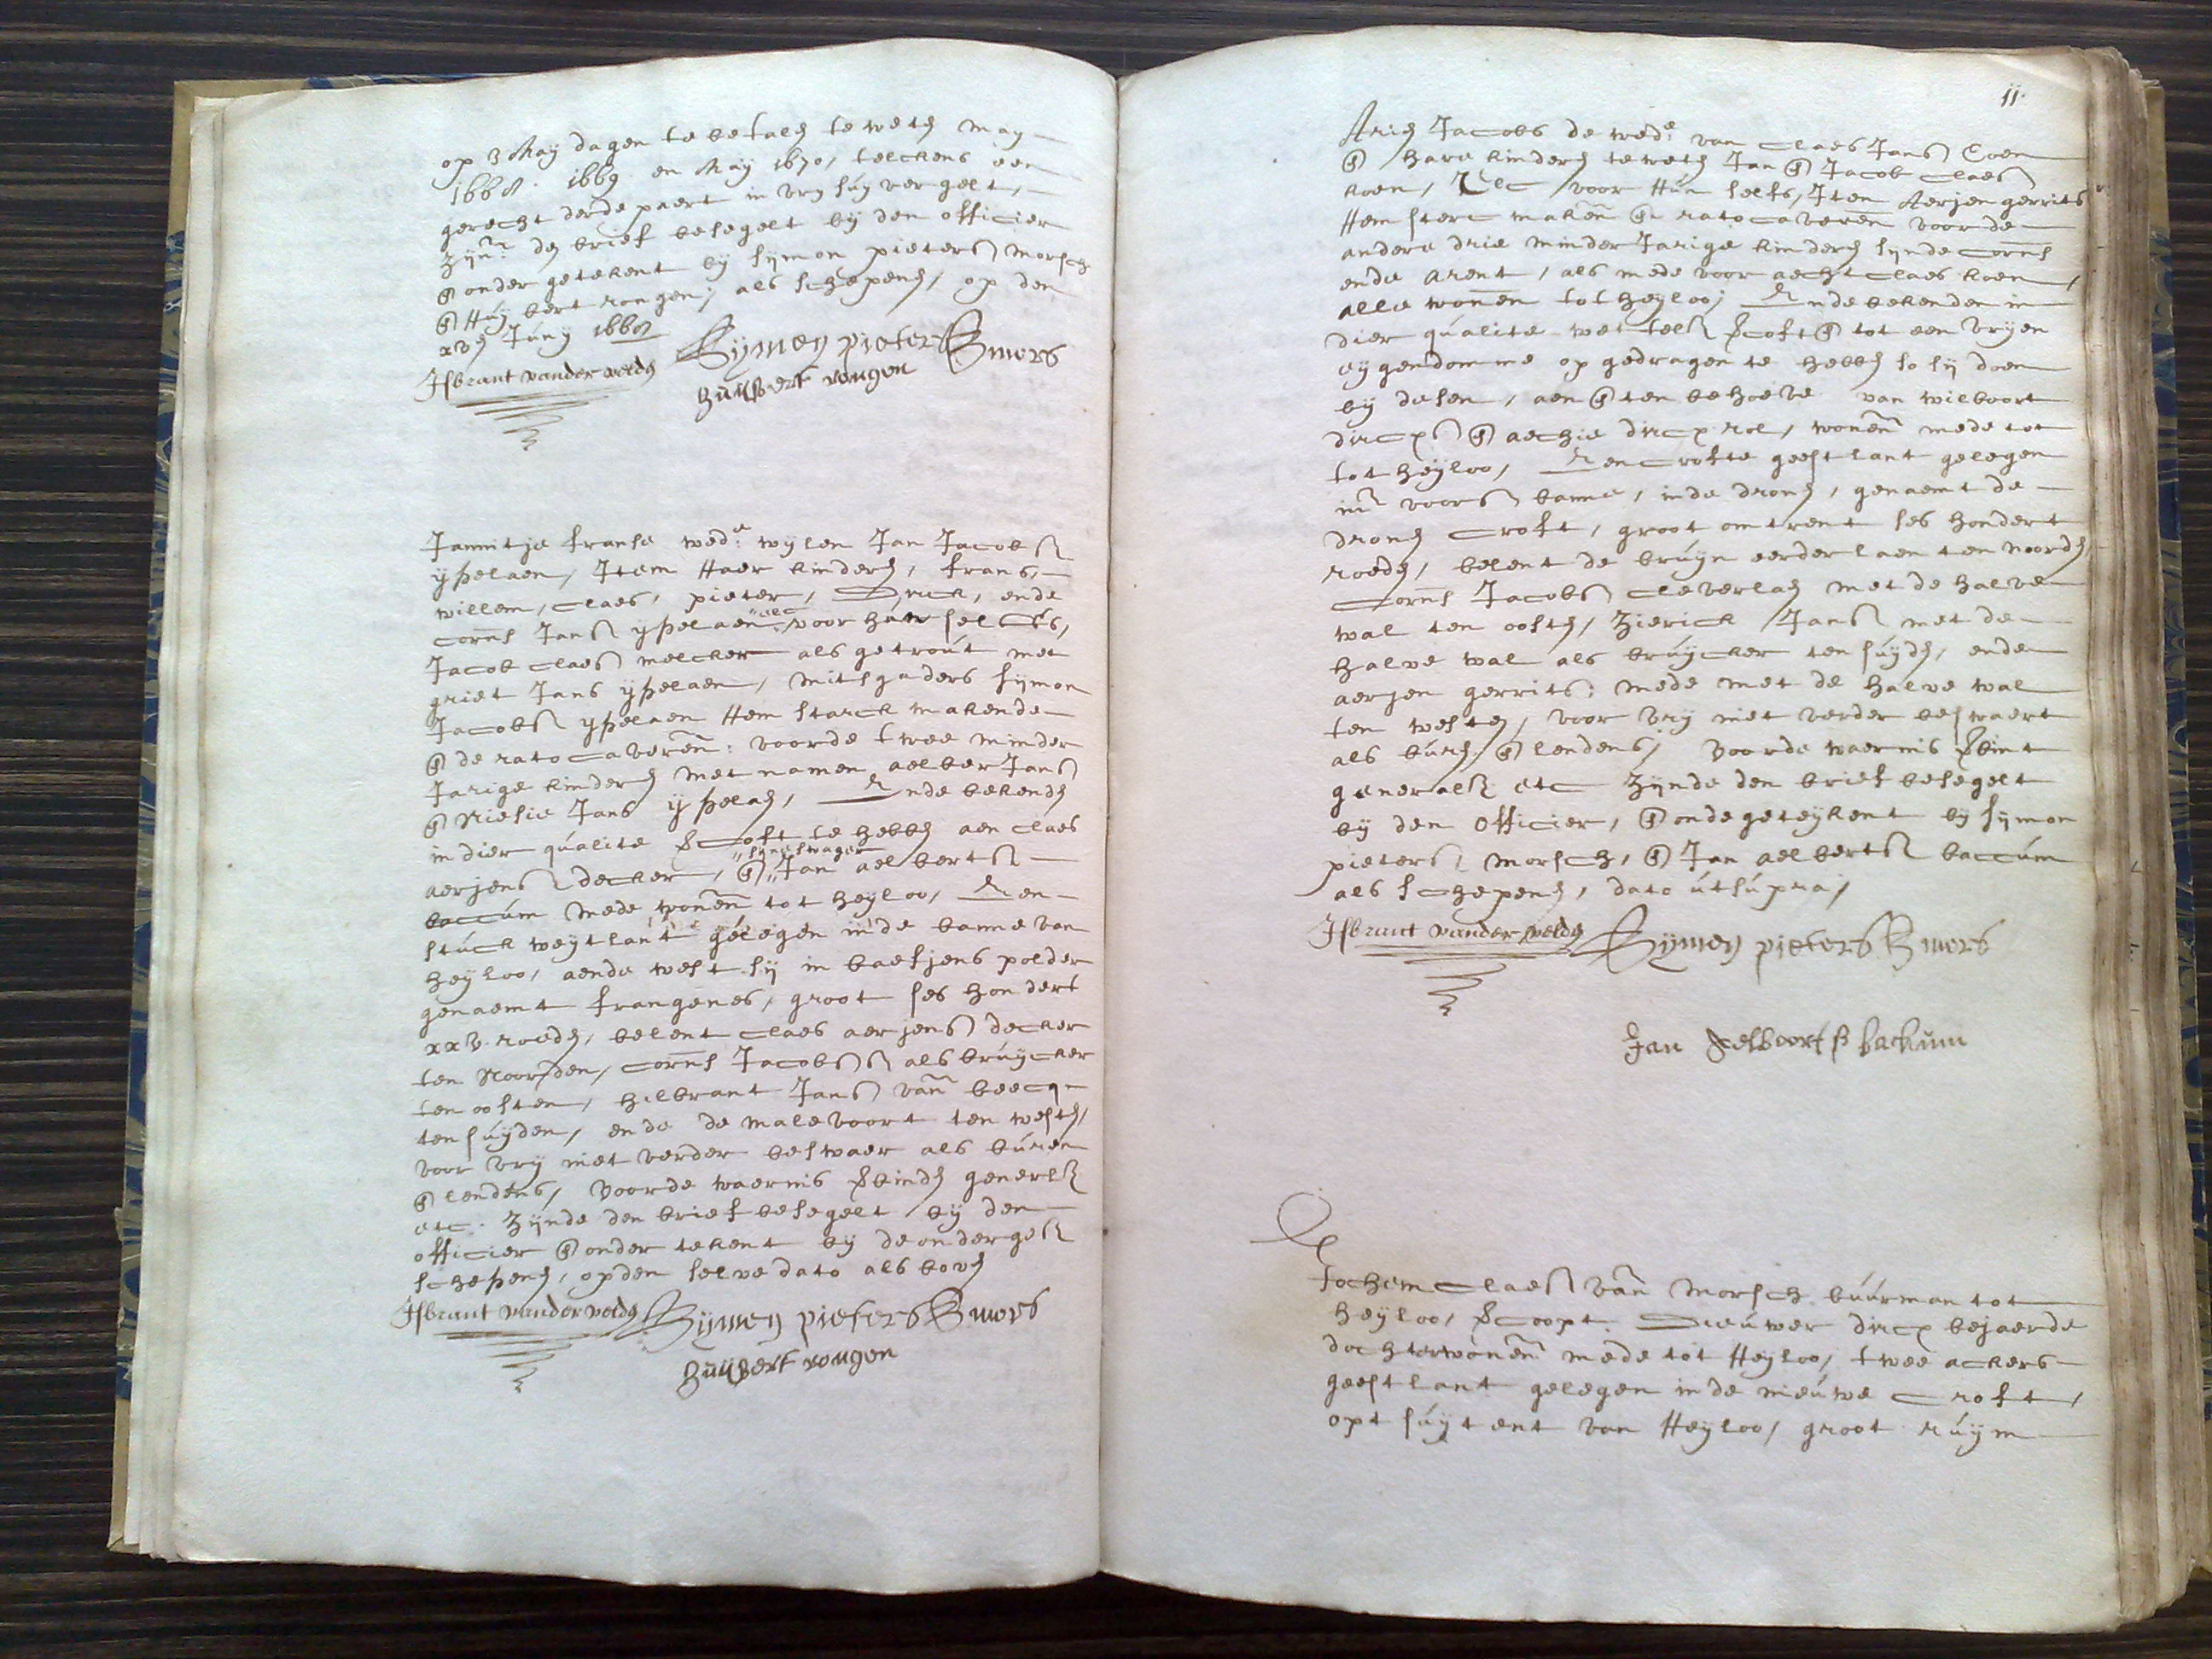 op 3 Maÿ dagen te betalen te weten maÿ
1668. 1669 en Maÿ 1670, telckens een
gerecht derde paert in vrÿ suÿver gelt,
zijn.. de brief besegelt bij den officier
& onder getekent bij Sijmon pieterss Morsch
& Huÿbert rongen, als schepenen, op den
Junÿ
Isbrant vander velde Sijmen pieters Smors
Huijbert rongen
Jannitje franse wed.e wijlen Jan Jacobss
ijpelaen, Item Haer kinderen, frans,
willem, claes, pieter, Dirck, ende
corns Janss ijpelaen elc voor selffs,
Jacob claess melcker als getrout met
griet Jans ijpelaen, mitsgaders sijmon
Jacobss ijpelaen Hem starck makende
& de rato caveren: voorde twee minder
Jarige kinderen met namen aelber Janss
& Niesie Jans ijpelaen, Ende bekenden
in dier qualite vercoft te hebben aen claes
aerjenss decker, & sijne swager Jan aelbertss
baccum mede wonen tot heÿloo, Een
stuck weÿtlant gelegen inde banne van
heÿloo, aende west sij in baefjens polder
genaemt frangenes, groot ses hondert
xxv roeden, belent claes aerjenss decker
ten Noorden, corns Jacobss als bruÿcker
ten oosten, hilbrant Janss van beecq
ten suÿden, ende de malevoort ten westen,
voor vrÿ niet verder beswaer als buren
& lendens, voorde waernis verbinden generlr
etc. Zijnde den brief besegelt bij den
officier & onder tekent bij de ondergess
schepenen, opden selve dato als boven
Isbrant vander velde Sijmen pieters Smors
Huijbert rongen
11.
Arien Jacobs de wed.e van claes Janss Coen
& hare kinderen te weten Jan & Jacob claess
koen, Elc voor Hun selfs, Item Aerjen gerrits
Hem sterc maken & rato caveren voor de
andere drie minder Jarige kinderen sijnde corns
ende arent, als mede voor aecht claes koen,
alle wonen tot heÿloo, Ende bekenden in
dier qualite wettelr vercoft & tot een vrijen
eÿgendomme op gedragen te hebben so sij doen
bij desen, aen & ten behoeve van wilboort
dircxss & aechie dircx rol, wonen mede tot
tot heÿloo, Een crofte geestlant gelegen
in voors banne, inde dronen, genaemt de
dronen croft, groot omtrent ses hondert
roeden, belent de bruÿn eerder laen ten noorden
Corns Jacobss cleverlaen met de halve
wal ten oosten, Zierick Janss met de
halve wal als bruÿcker ten suÿden, ende
aerjen gerrits: mede met de halve wal
ten westen, voor vrÿ niet verder beswaert
als buren & lendens, Voorde waernis verbint
generalr etc Zijnde den brief besegelt
bij den Officier, & onde geteÿkent bij sijmon
pieterss Morsch, & Jan aelbertss baccum
als schepenen, dato ut supra,
Isbrant vander velde Sijmen pieters Smors
Jan Aelboortss backum
Jochem claess van Morsch buurman tot
heÿloo, vercoopt Dieuwer dircx bejaerde
dochter wonen mede tot Heÿloo, twee ackers
geestlant gelegen inde nieuwe croft,
opt suÿt ent van Heÿloo, groot ruÿm